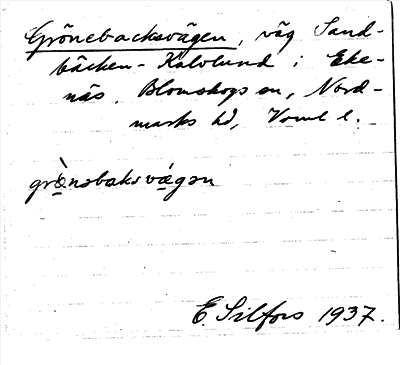 Grönebacksvägen, väg Sand-
bäcken - Kalvlund i Eke-
näs. Blomskogs sn, Nord-
marks hd, Verml l.
grö̀nəbaksvæ̀gən
E. Silfors 1937.